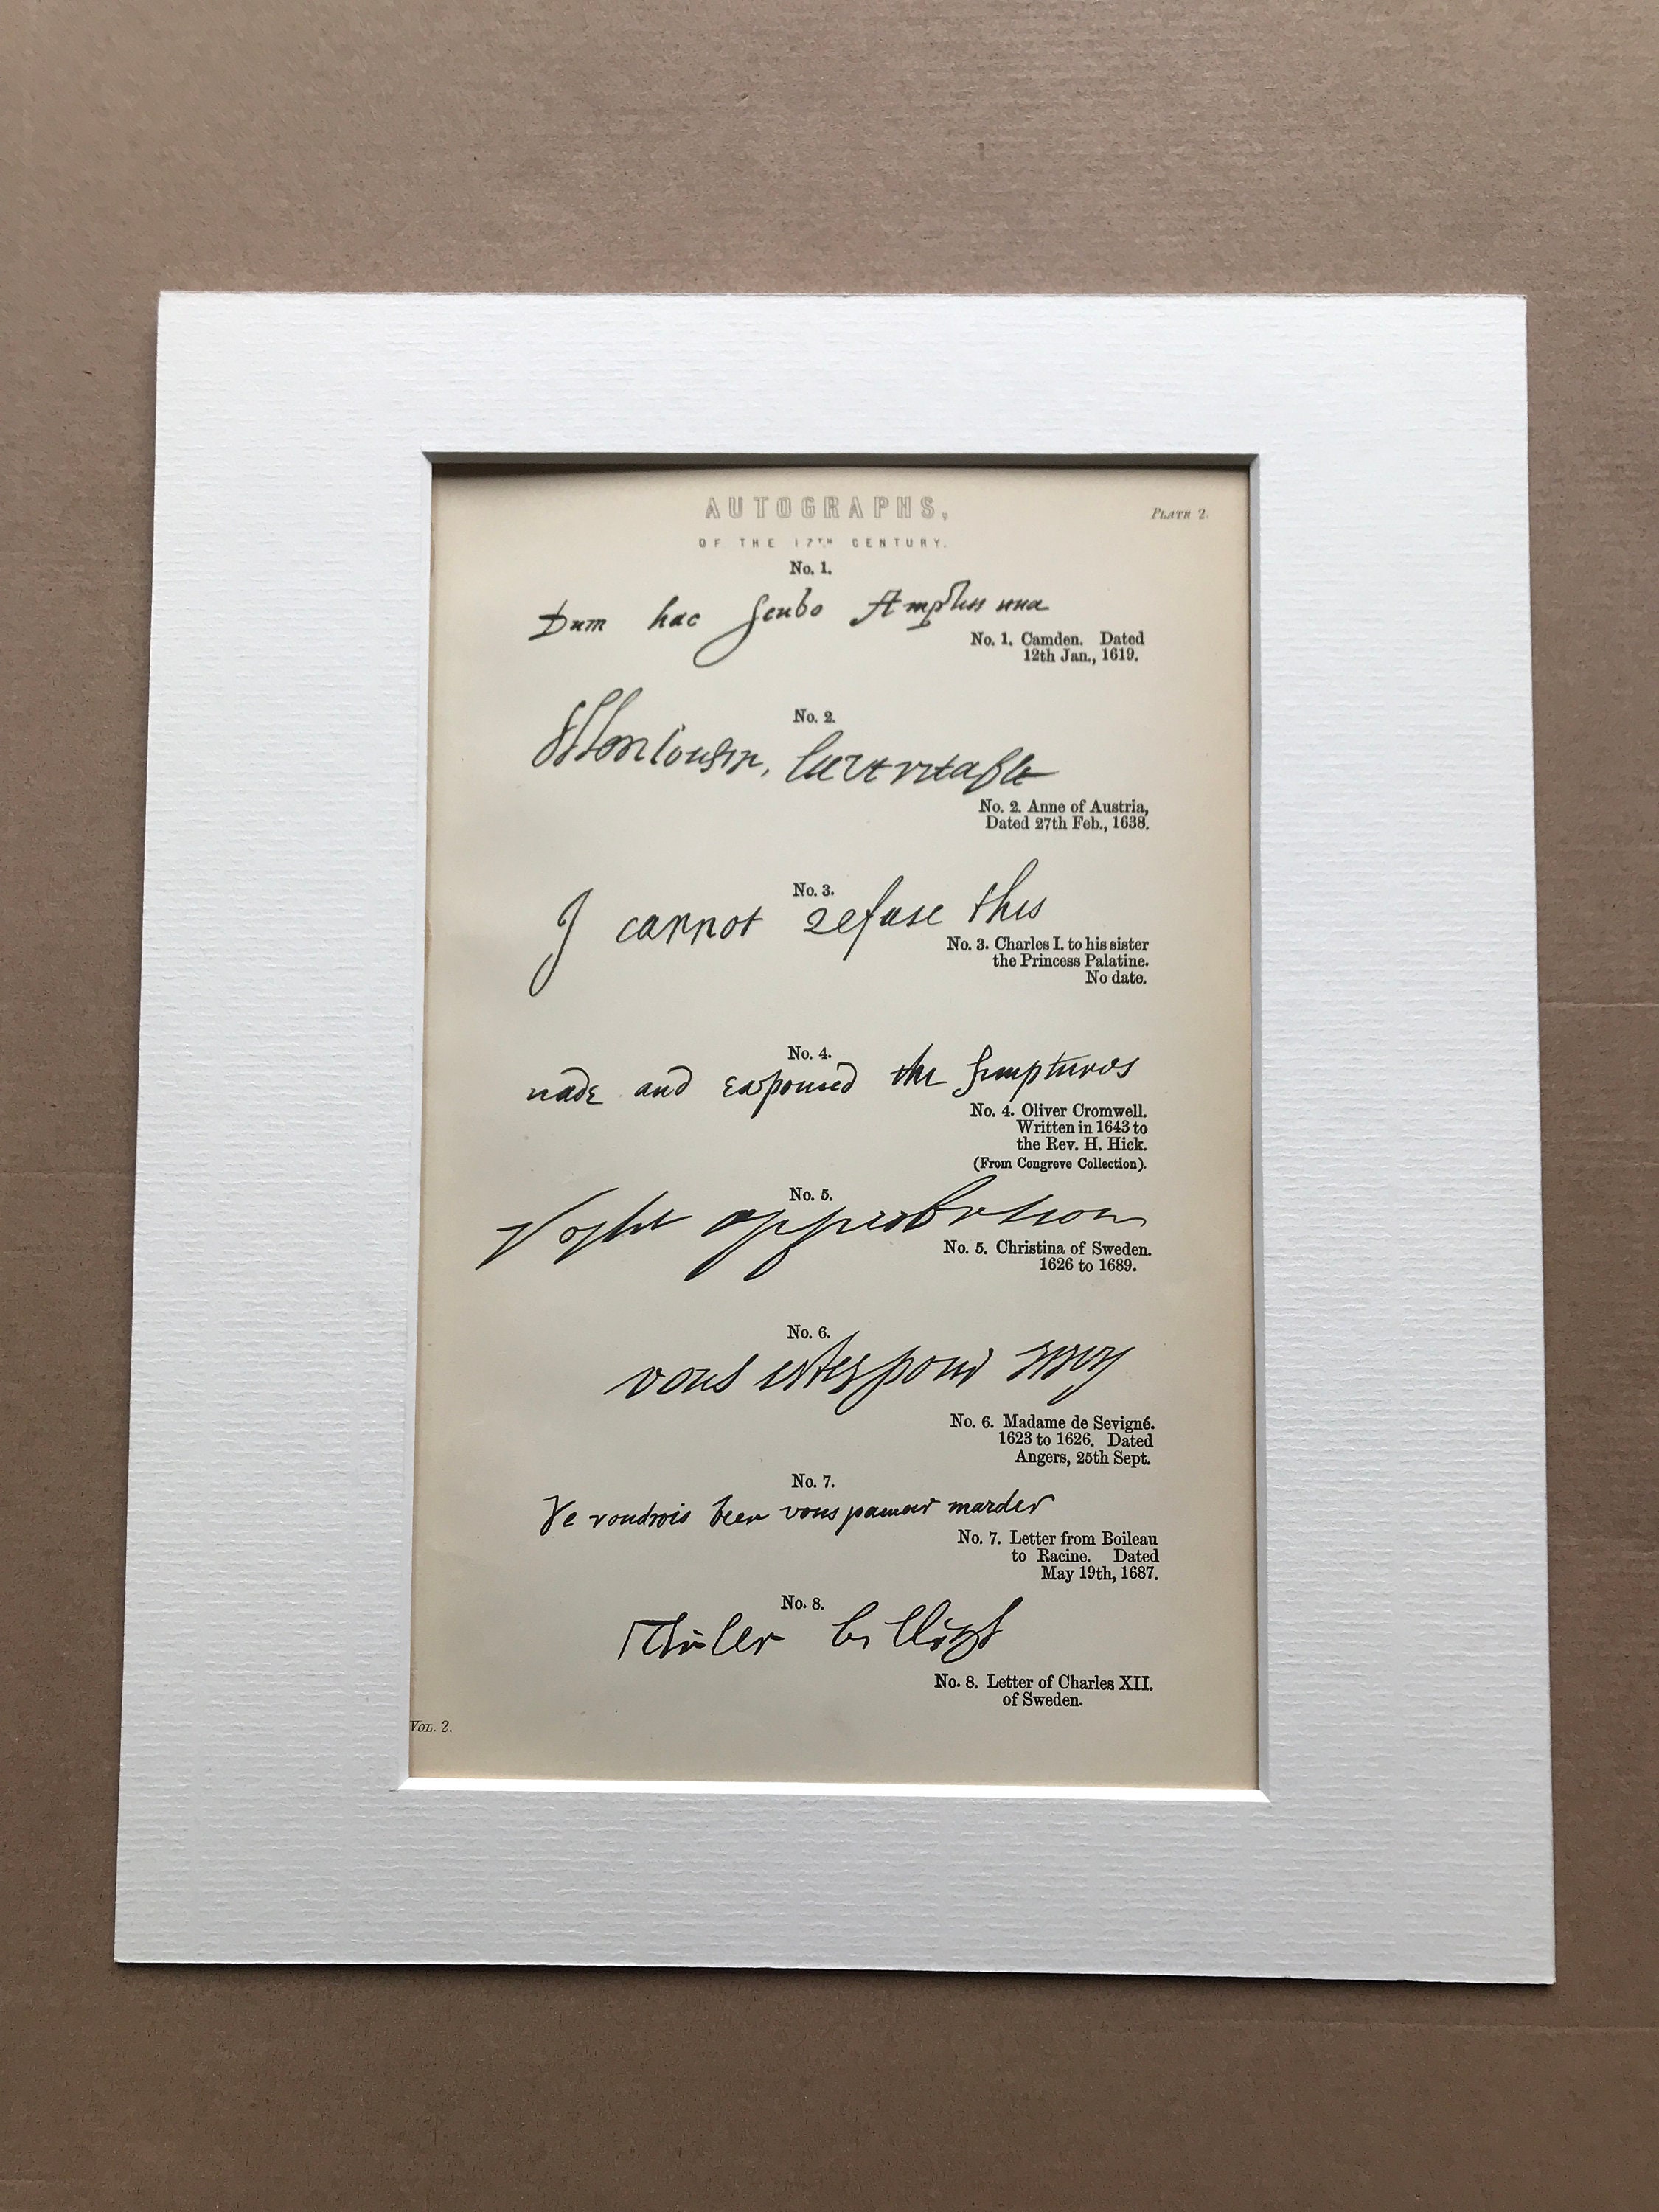 AUTOGRAPHS,
PLATE 2.
OF THE 17TH CENTURY.
No. 1.
Dum hac
No. 1. Camden. Dated
12th Jan., 1619.
No. 2.
No. 2. Anne of Austria,
Dated 27th Feb., 1638.
No. 3.
I cannot refuse this
No. 3. Charles I. to his sister
the Princess Palatine.
No date.
No. 4.
and the
No. 4. Oliver Cromwell.
Written in 1643 to
the Rev. H. Hick.
(From Congreve Collection).
No. 5.
approbation
No. 5. Christina of Sweden.
1626 to 1689.
No. 6.
vous estes pour moy
No. 6. Madame de Sevigné.
1623 to 1626. Dated
Angers, 25th Sept.
No. 7.
Je voudrois bien vous
No. 7. Letter from Boileau
to Racine. Dated
May 19th, 1687.
No. 8.
No. 8. Letter of Charles XII.
of Sweden.
VOL. 2.